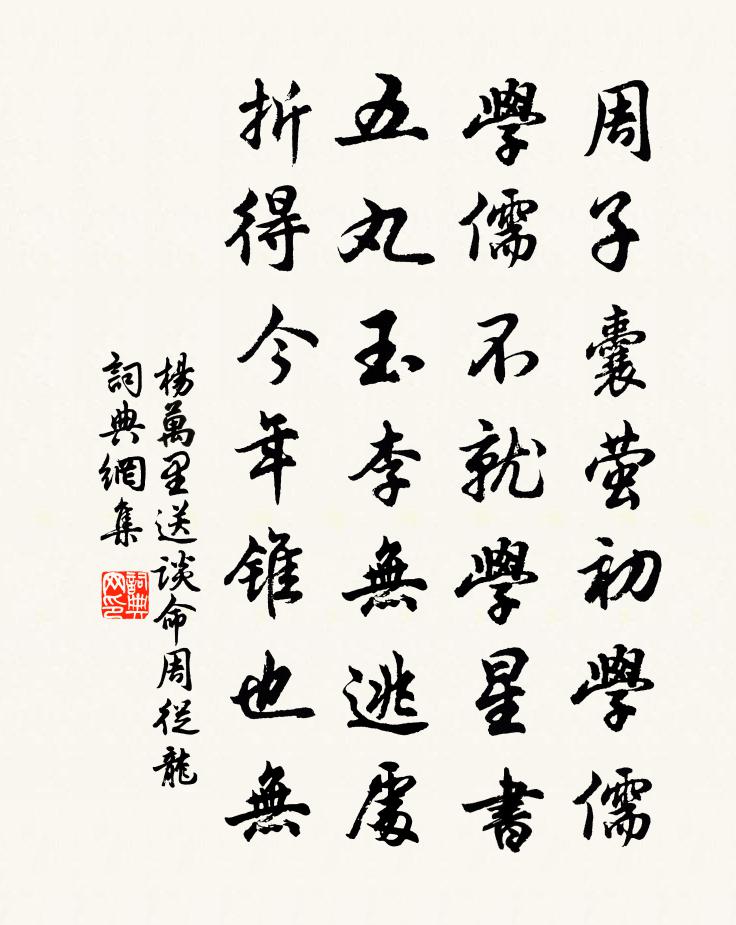 周子囊萤初學儒
學儒不就學星書
五丸玉李無逃處
折得今年錐也無
楊萬里送談命周從龍
詞典網集
詞典网印